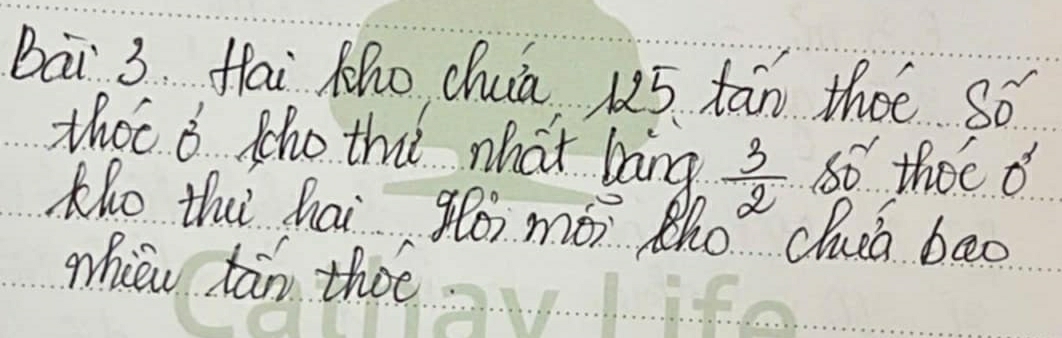 Bài 3. Hai kho chứa 125 tấn thóc. Số
thóc ở kho thứ nhất bằng 3/2 số thóc ở
kho thứ hai. Hỏi mỗi kho chứa bao
nhiêu tấn thóc.
Cathay Life